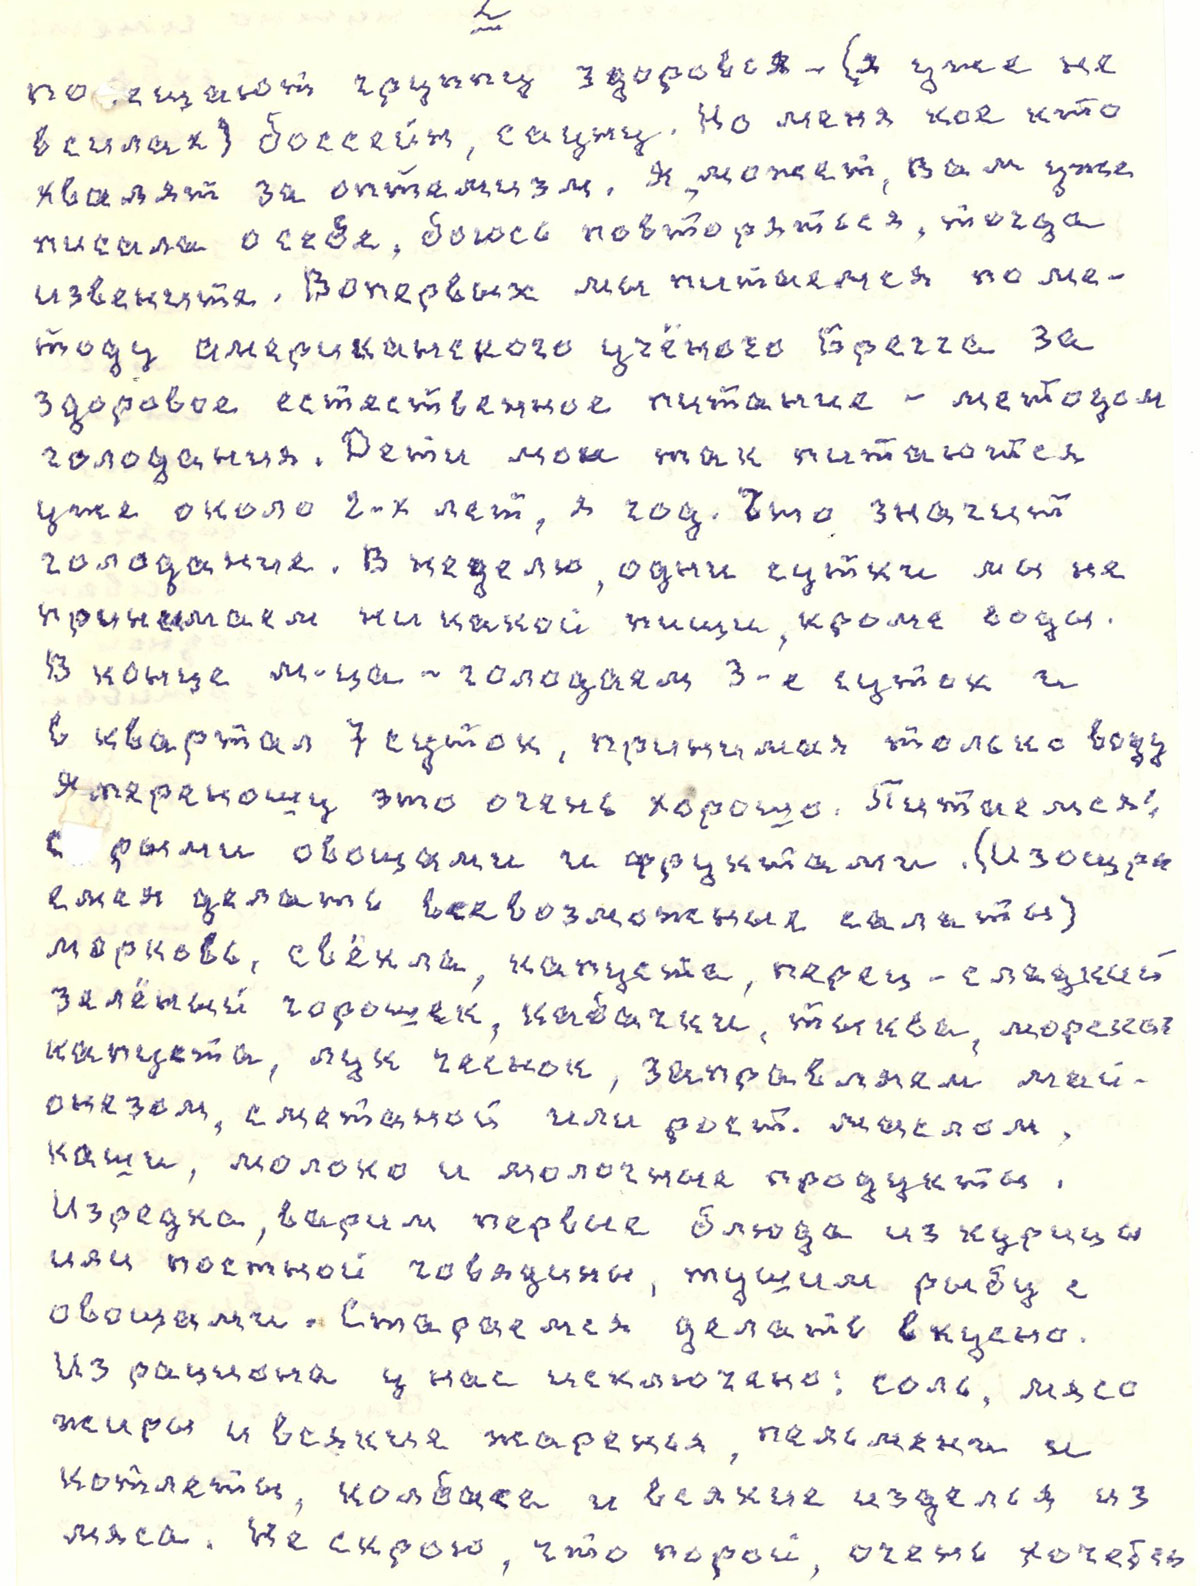 2
по ещают группу здоровья - (я уже не
всилах) боссейн, сауну. Но меня кое кто
хвалят за оптемизм. Я, может, Вам уже
писала о себе, боюсь повторяться, тогда
извените. Вопервых мы питаемся по ме-
тоду американского учёного Брегга за
здоровое естественное питание - методом
голодания. Дети мои так питаются
уже около 2-х лет, я год. Что значит
голодание. В неделю, одни сутки мы не
принемаем ни какой пищи, кроме воды.
В конце м-ца - голодаем 3-е суток и
в квартал 7 суток, принимая только воду
Я переношу это очень хорошо. Питаемся:
с рыми овощами и фруктами. (Изощря
емся делать всевозможные салаты)
морковь, свёкла, капуста, перец - сладкий
зелёный горошек, кабачки, тыква, морская
капуста, лук чеснок, заправляем май-
онезом, сметаной или раст. маслом,
каши, молоко и молочные продукты.
Изредка, варим первые блюда из курицы
или постной говядины, тушим рыбу с
овощами. Стараемся делать вкусно.
Из рациона у нас исключено: соль, мясо
жиры и всякие жаренья, пельмени и
котлеты, колбаса и всякие изделья из
мяса. Не скрою, что порой, очень хочется